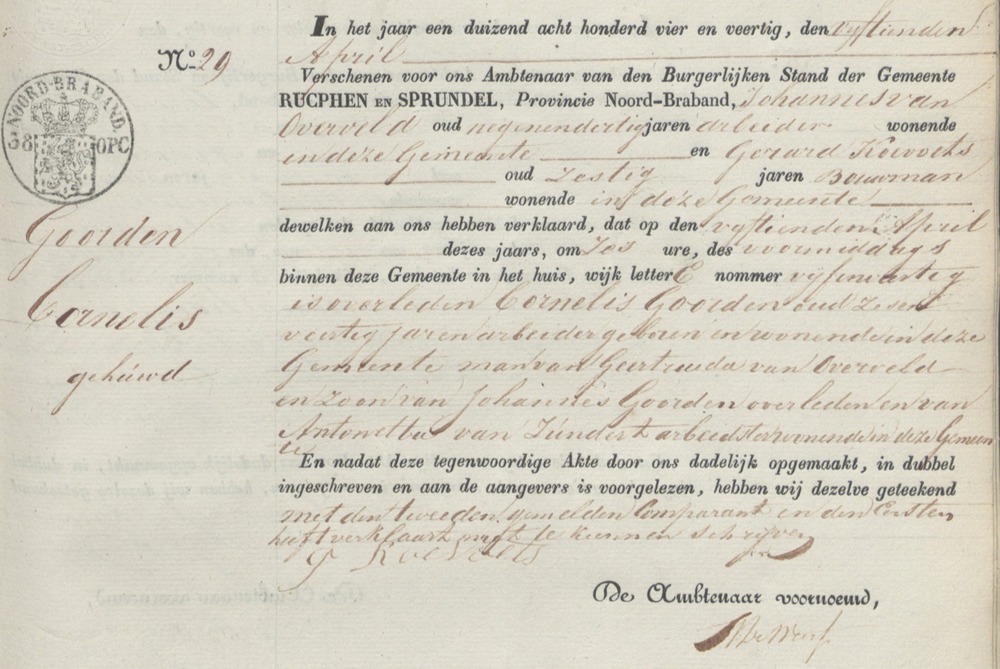 In het jaar een duizend acht honderd vier en veertig, den vyftienden
No. 29
April
Verschenen voor ons Ambtenaar van den Burgerlijken Stand der Gemeente
RUCPHEN EN SPRUNDEL, Provincie Noord-Braband, Johannes van
NOORD-BRABAND.
38 OPC
Overveld oud negenendertig jaren arbeider wonende
in deze Gemeente en Gerard Koevoets
oud Zestig jaren Bouwman
wonende in deze Gemeente
Goorden
dewelken aan ons hebben verklaard, dat op den vyftienden April
dezes jaars, om Zes ure, des voormiddags
binnen deze Gemeente in het huis, wijk letter E nommer vyfenveertig
Cornelis
is overleden Cornelis Goorden oud Zesen
veertig jaren arbeider geboren en wonende in deze
gehuwd
Gemeente man van Geertruida van Overveld
en Zoon van Johannes Goorden overleden en van
Antonetta van Zundert arbeidster wonende in deze Gemeen
te
En nadat deze tegenwoordige Akte door ons dadelijk opgemaakt, in dubbel
ingeschreven en aan de aangevers is voorgelezen, hebben wij dezelve geteekend
met den tweeden gemelden Comparant en den Eersten
heeft verklaart niet te kunnen schrijven
G Koevoets
De Ambtenaar voornoemd,